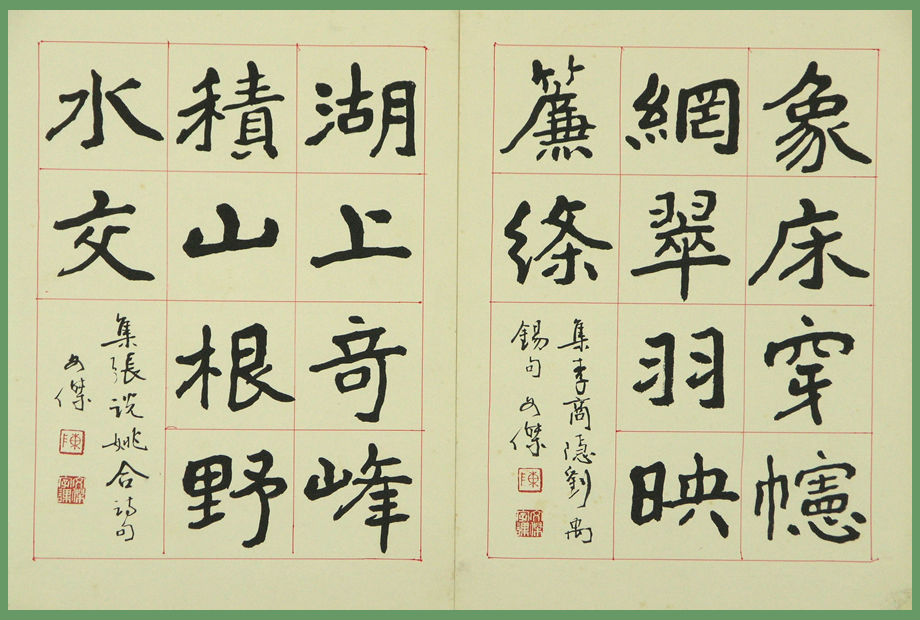 象床穿幰
網翠羽映
簾絛
集李商隱劉禹
錫句 文傑
陳
湖上奇峰
積山根野
水交
集張説姚合詩句
文傑
陳